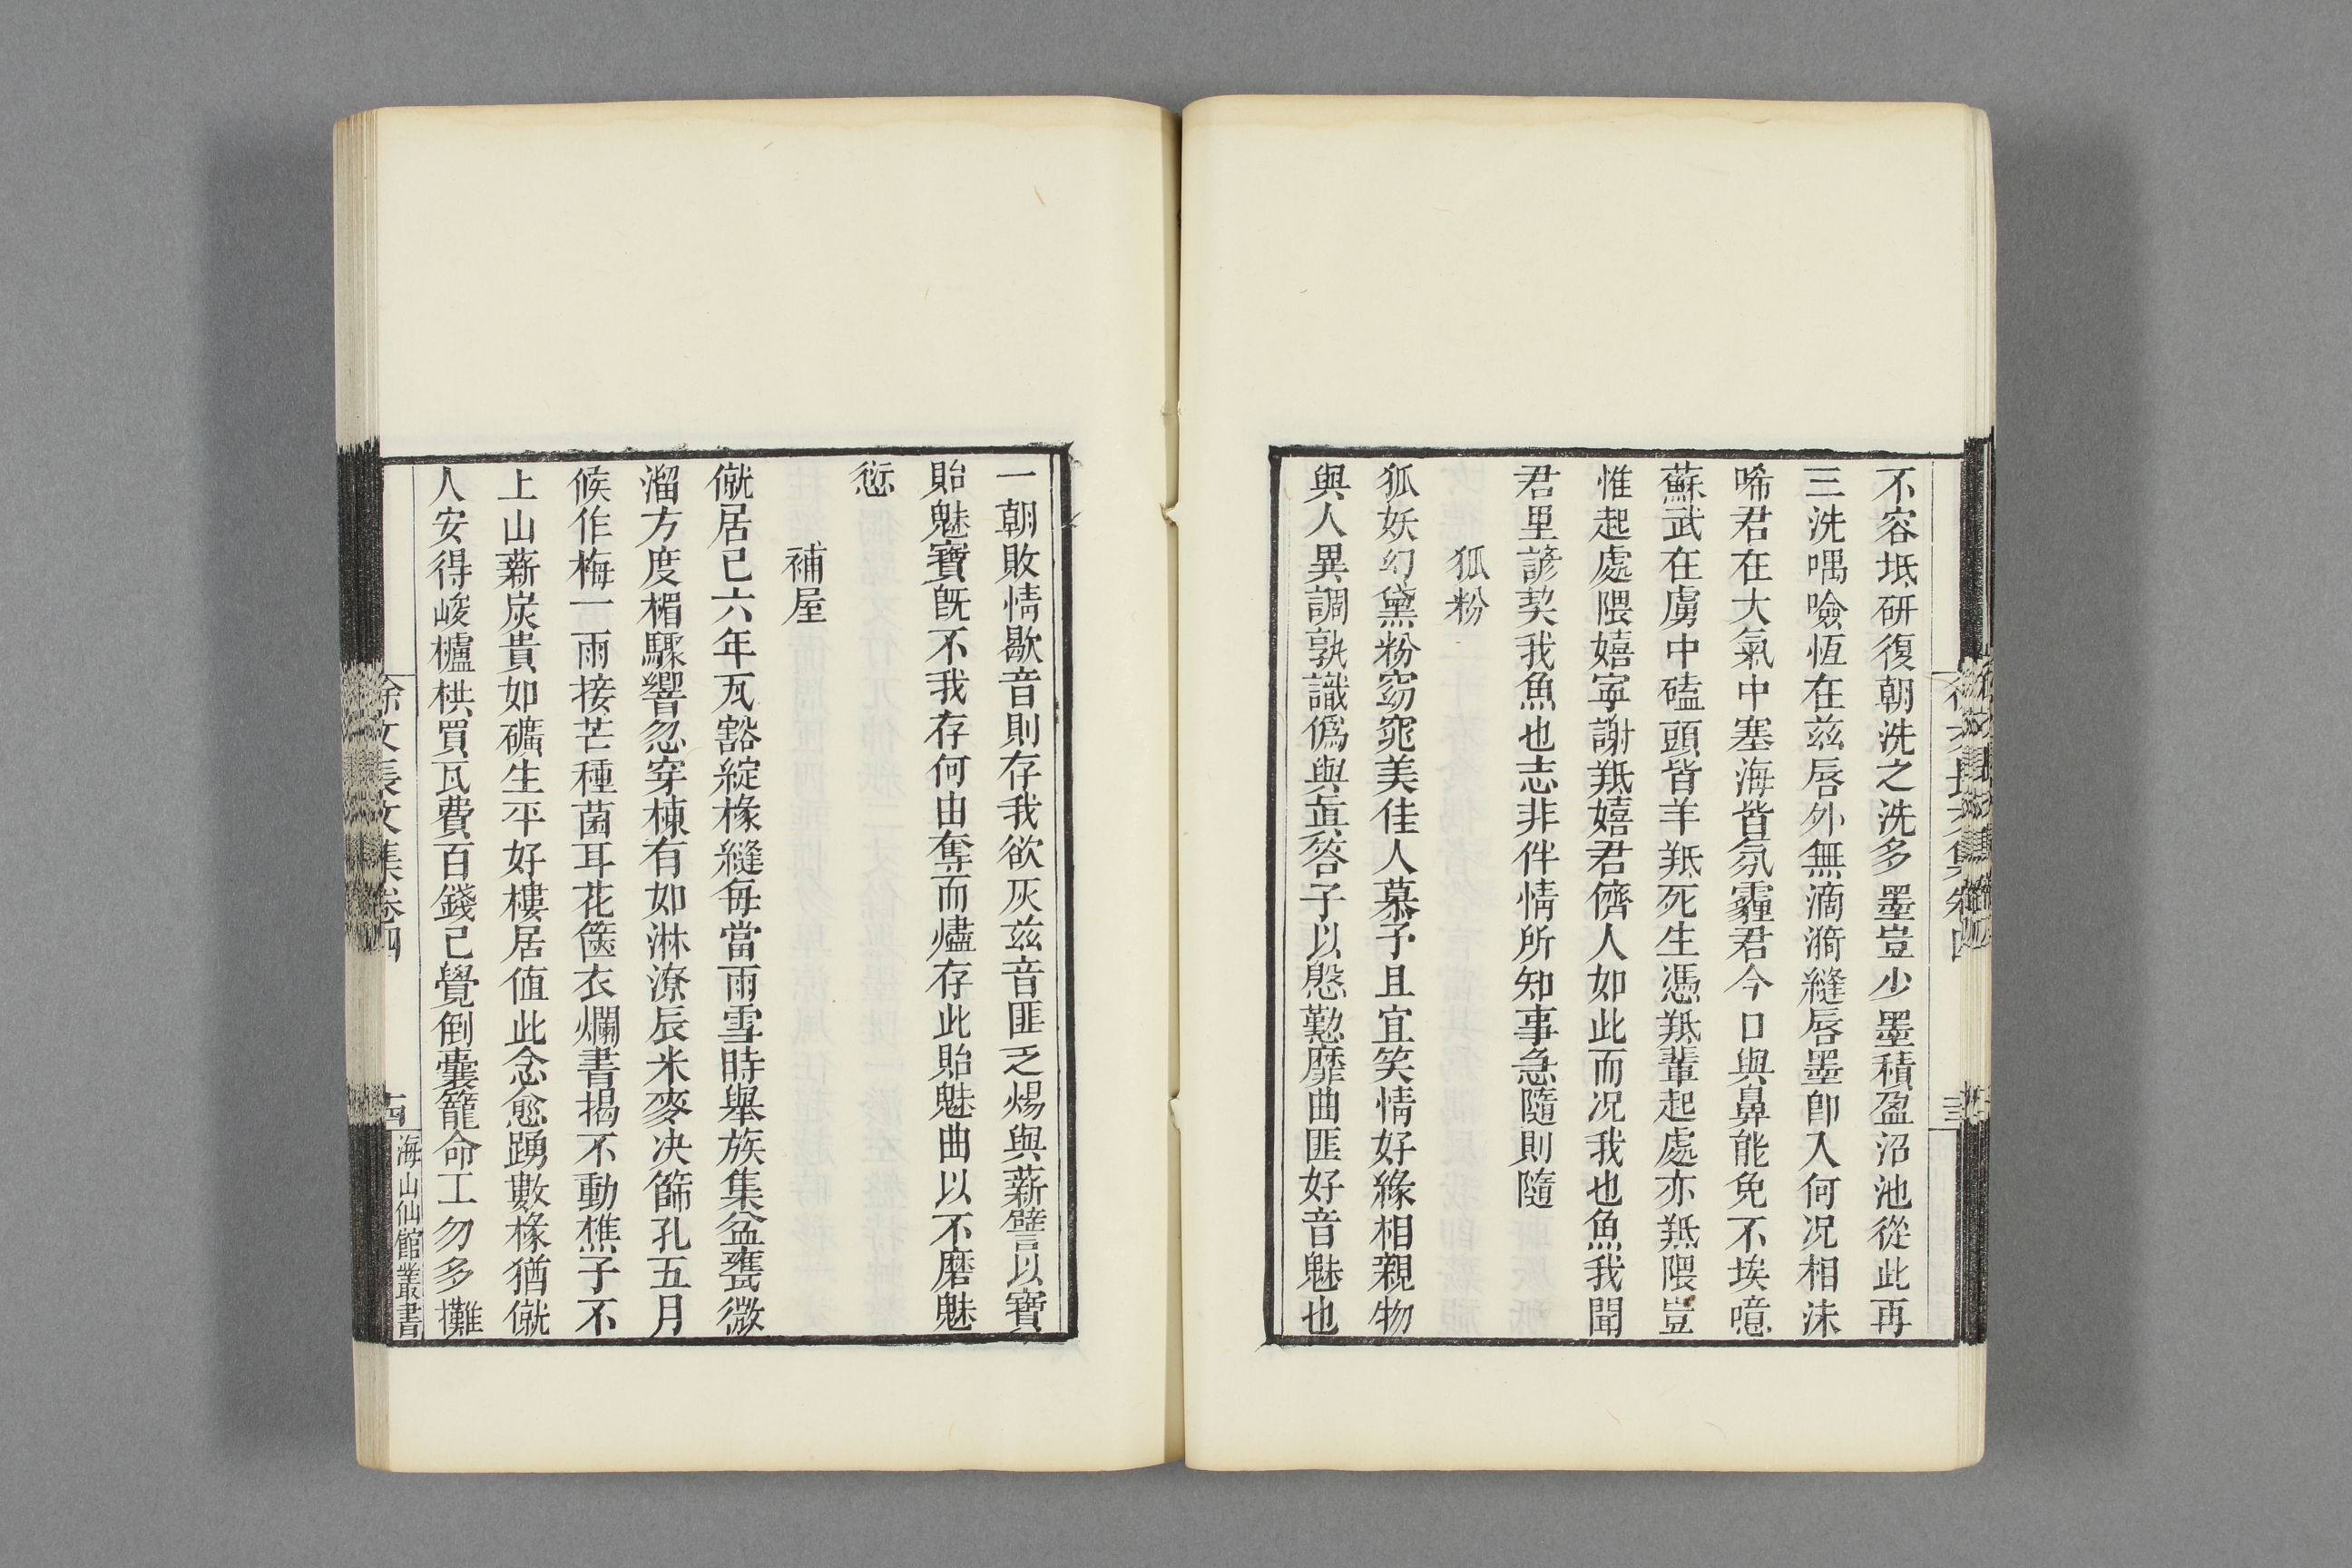 不容坻研復朝洗之洗多墨豈少墨積盈沼池從此再
三洗喁噞恆在茲唇外無滴漪縫唇墨卽入何况相沬
唏君在大氣中塞海皆氛霾君今口與鼻能免不埃噫
蘇武在虜中磕頭皆羊羝死生憑羝輩起處亦羝隈豈
惟起處隈嬉寧謝羝嬉君儕人如此而况我也魚我聞
君里諺契我魚也志非伴情所知事急隨則隨
狐粉
狐妖幻黛粉窈窕美佳人慕子且宜笑情好緣相親物
與人異調孰識僞與眞答子以慇懃靡曲匪好音魅也
一朝敗情歇音則存我欲灰茲音匪乏煬與薪譬以寶
貽魅寶旣不我存何由奪而燼存此貽魅曲以不磨魅
愆
補屋
僦居已六年瓦豁綻椽縫每當雨雪時舉族集盆甕微
溜方度楣驟響忽穿棟有如淋潦辰米麥决篩孔五月
候作梅一雨接芒種菌耳花篋衣爛書揭不動樵子不
上山薪炭貴如礦生平好樓居値此念愈踴數椽猶僦
人安得峻櫨栱買瓦費百錢已覺倒囊籠命工勿多攤
徐文長文集卷四
十四
海山仙館叢書